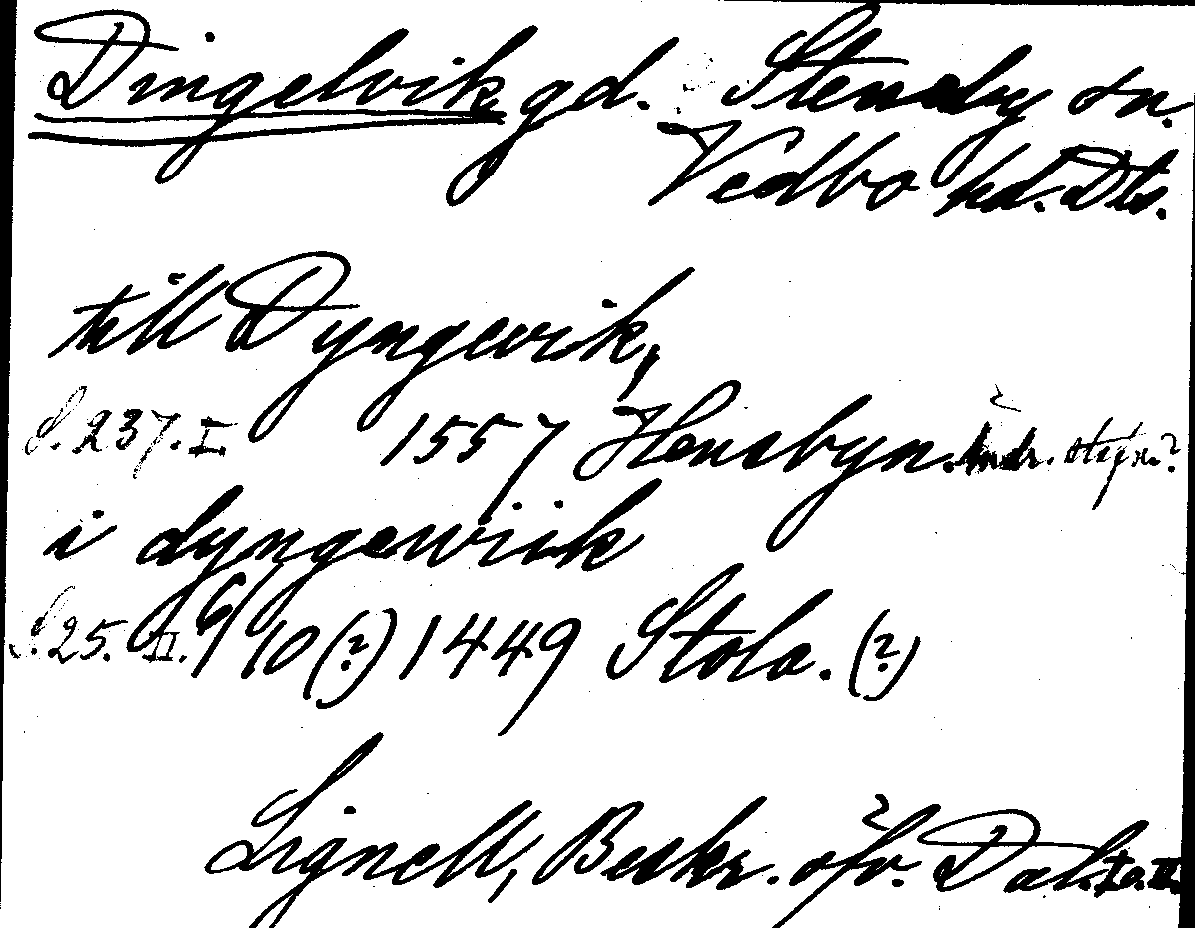 Dingelvik gd. Steneby sn.
Vedbo hd. Dls.
till Dyngewik,
S. 237. I. 1557 Hensbyn. Andr. stafn.?
i dyngewiik
S. 25. II. 6/10 (?) 1449 Stola. (?)
Lignell, Beskr. öfv. Dal. I o. II.